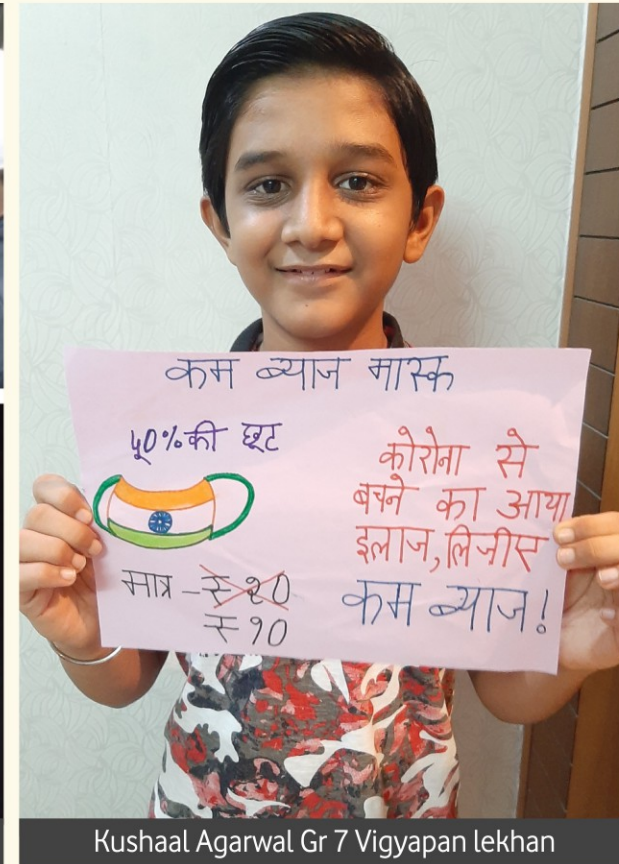 कम ब्याज मास्क
५०% की छूट
कोरोना से
बचने का आया
इलाज, लिजीए
कम ब्याज!
मात्र - ₹ २०
₹ १०
Kushaal Agarwal Gr 7 Vigyapan lekhan